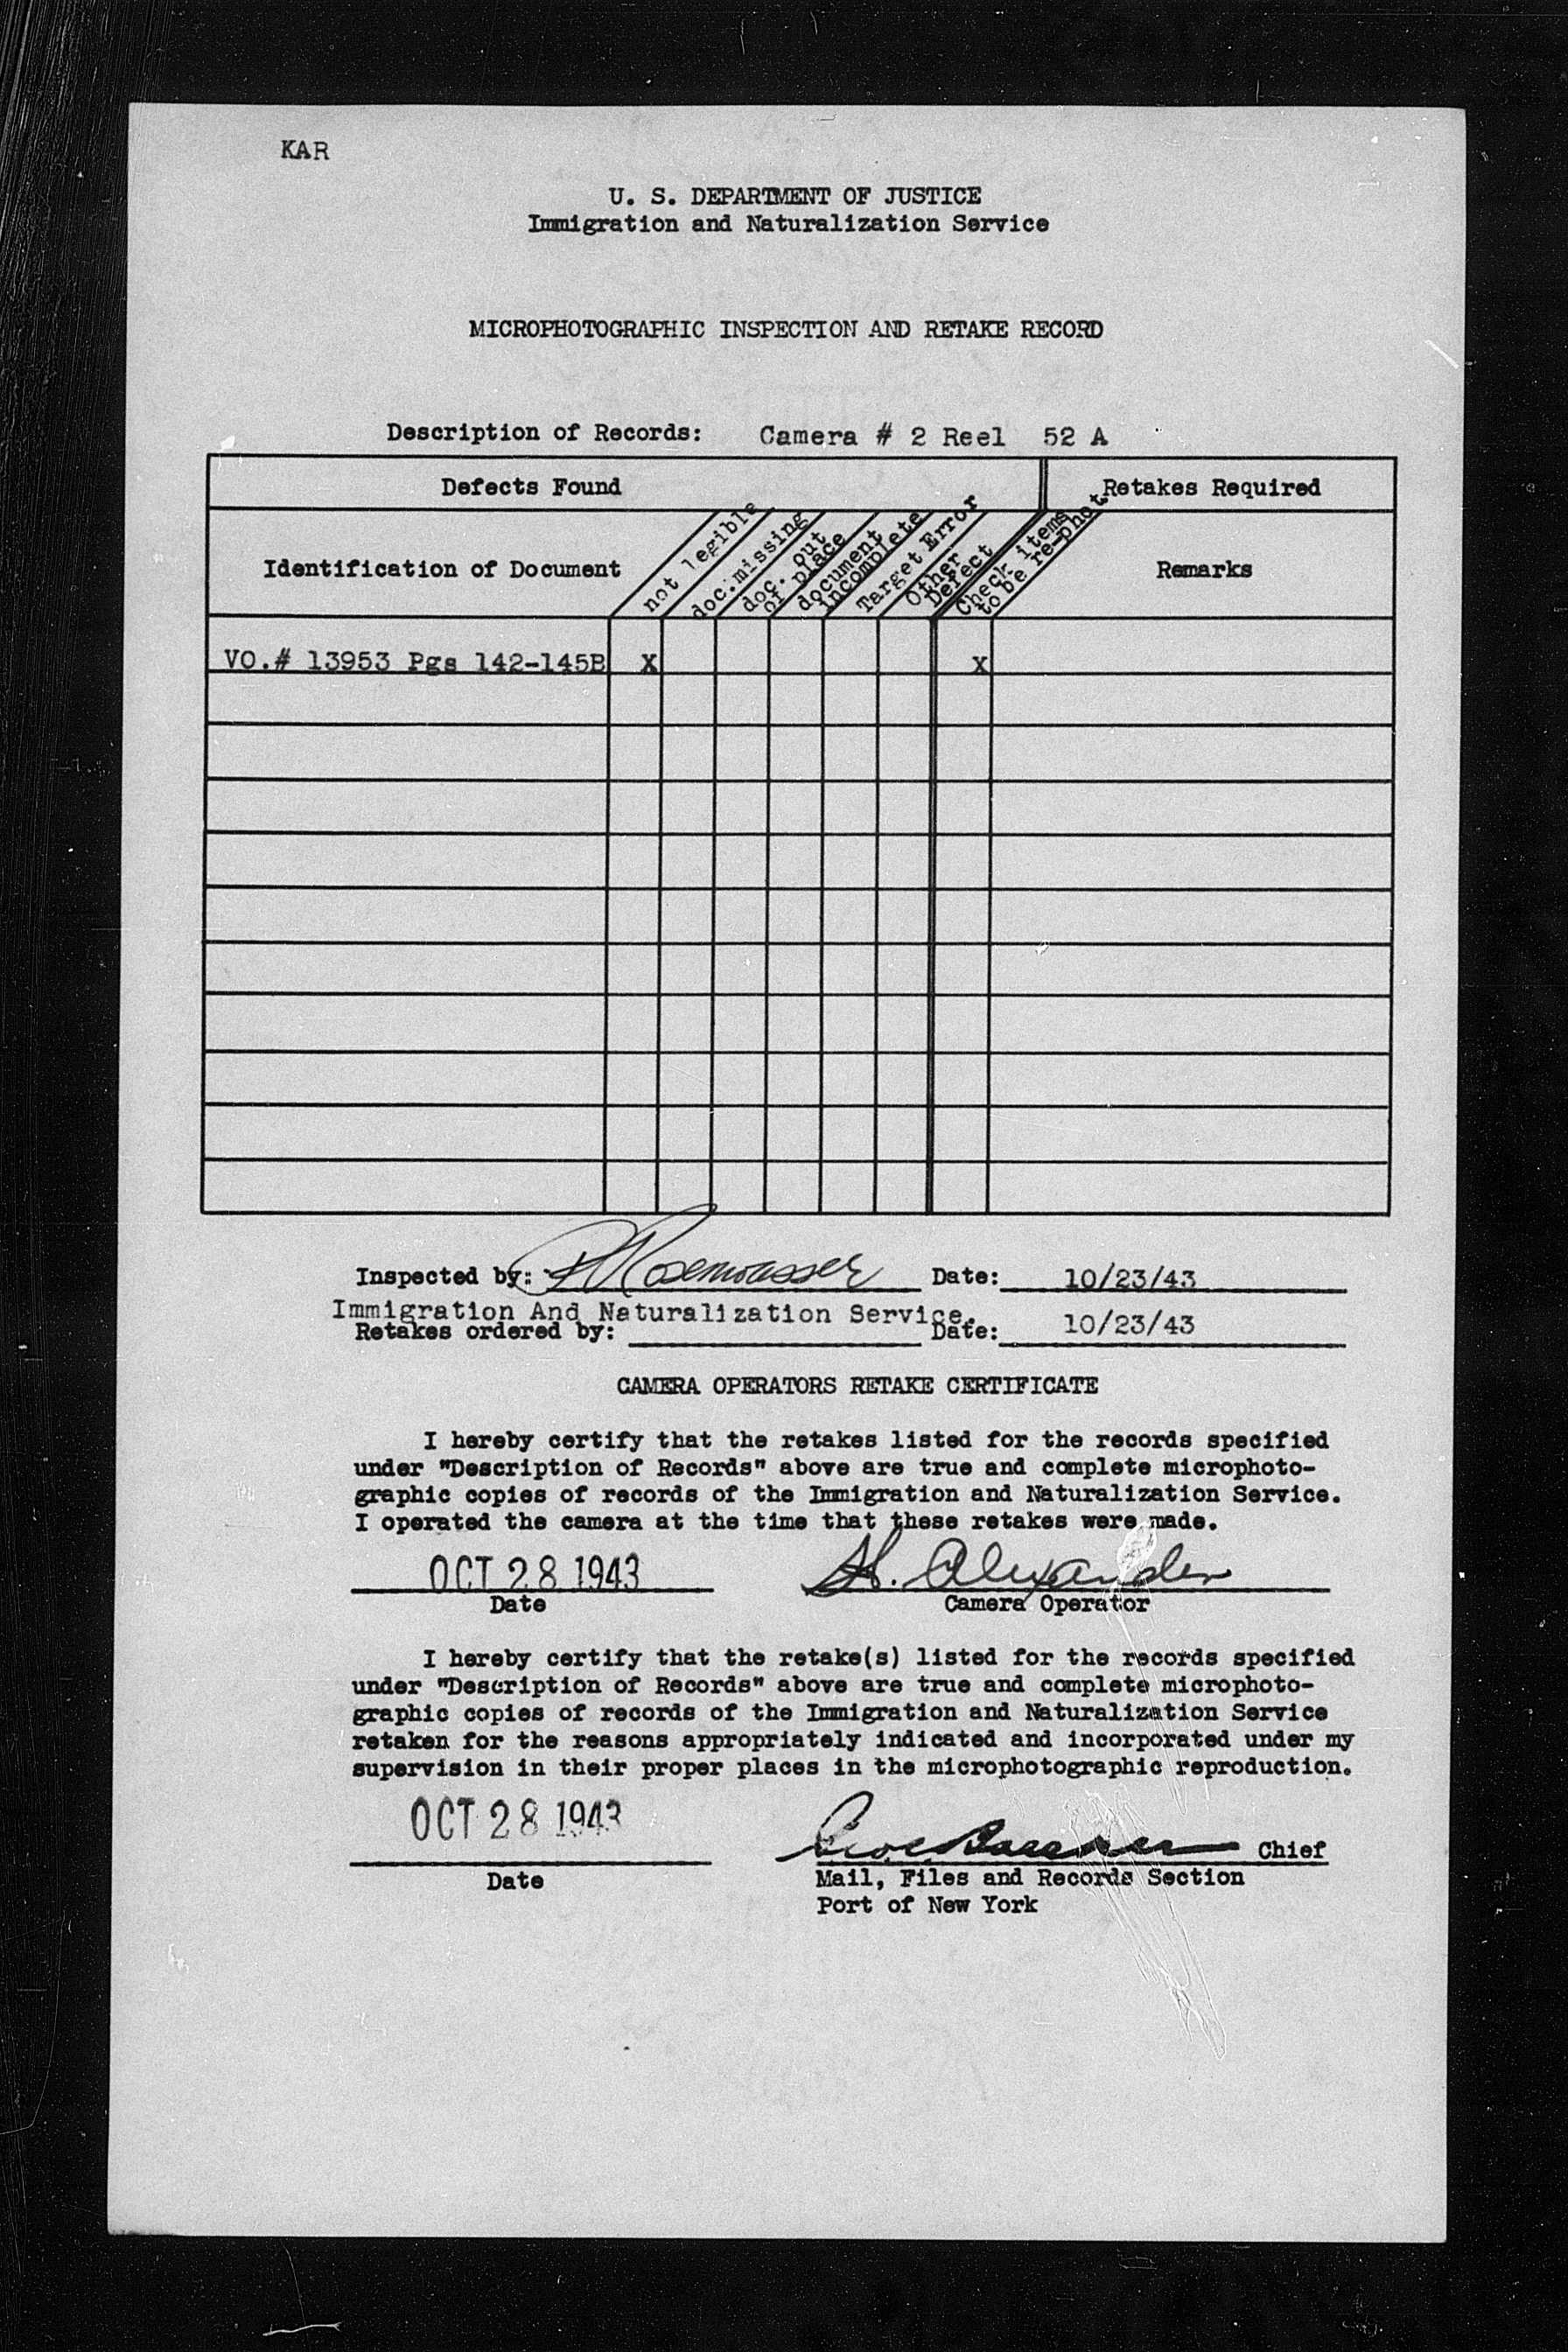 KAR
U. S. DEPARTMENT OF JUSTICE
Immigration and Naturalization Service
MICROPHOTOGRAPHIC INSPECTION AND RETAKE RECORD
Description of Records: Camera # 2 Reel 52 A
Defects Found
Retakes Required
Identification of Document
not legible
doc. missing
doc. out
of place
document
incomplete
Target Error
Other
Defect
Check items
to be re-phot.
Remarks
VO.# 13953 Pgs 142-145B X X
Inspected by: Rosenwasser Date: 10/23/43
Immigration And Naturalization Service.
Retakes ordered by: Date: 10/23/43
CAMERA OPERATORS RETAKE CERTIFICATE
I hereby certify that the retakes listed for the records specified
under "Description of Records" above are true and complete microphoto-
graphic copies of records of the Immigration and Naturalization Service.
I operated the camera at the time that these retakes were made.
OCT 28 1943 H. Alexander
Date Camera Operator
I hereby certify that the retake(s) listed for the records specified
under "Description of Records" above are true and complete microphoto-
graphic copies of records of the Immigration and Naturalization Service
retaken for the reasons appropriately indicated and incorporated under my
supervision in their proper places in the microphotographic reproduction.
OCT 28 1943
Chief
Date Mail, Files and Records Section
Port of New York